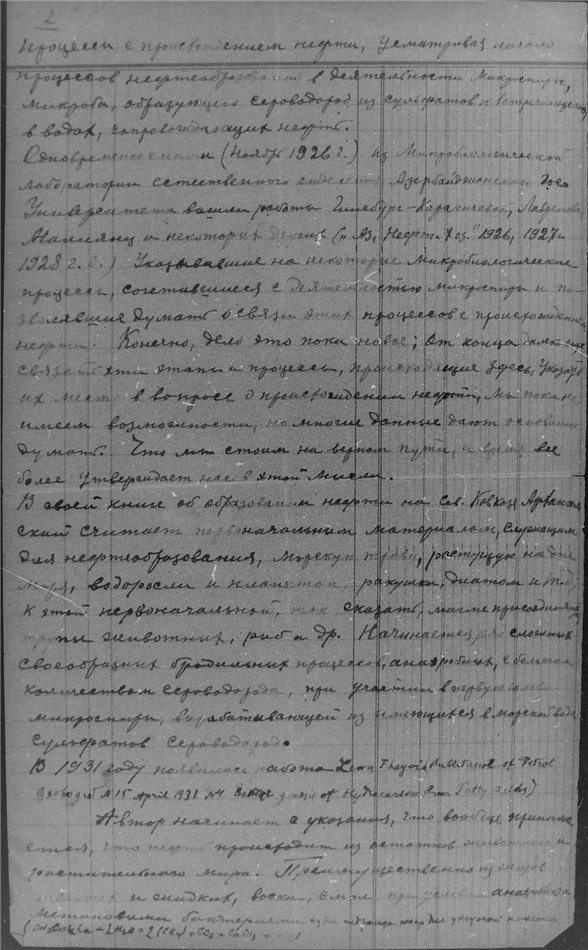 2
процессы с происхождением нефти, усматривая начало
процессов нефтеобразования в деятельности микроспиры,
микроба, образующего сероводород из сульфатов и встречающегося
в водах, сопровождающих нефть.
Одновременно с ними (ноябрь 1926 г.) из Микробиологической
лаборатории естественного отделения Азербайджанского Гос.
Университета вышли работы Гинзбург-Карагичевой,
Малиянц и некоторых других ("Аз. Нефт. Хоз." 1926, 1927 и
1928 г.г.) указывавшие на некоторые микробиологические
процессы, сочетавшиеся с деятельностью микроспиры и по-
зволявшие думать о связи этих процессов с происхождением
нефти. Конечно, дело это пока новое; до конца даже еще
связать эти этапы и процессы, происходящие здесь, указать
их место в вопросе о происхождении нефти, мы пока не
имеем возможности, но многие данные дают основание
думать. Что мы стоим на верном пути, и время все
более утверждает нас в этой мысли.
В своей книге об образовании нефти на Сев. Кавказе Архангель-
ский считает первоначальным материалом, служащим
для нефтеобразования, морскую траву, растущую на дне
моря, водоросли и планктон, ракушки, диатом и т.д.
К этой первоначальной, так сказать, магме присоединяются
трупы животных, рыб и др. Начинается ряд сложных
своеобразных бродильных процессов, анаэробных, с большим
количеством сероводорода, при участии в первую голову
микроспиры, вырабатывающей из имеющихся в морской воде
сульфатов сероводород.
В 1931 году появилась работа Thayer (of Petrol
N 15 April 1931 N4 of Hydrocarbon from Fatty acids)
Автор начинает с указания, что вообще принима-
ется, что нефть происходит из остатков животного и
растительного мира. Преимущественно из жиров
твердых и жидких, воска, смол при условии анаэробиоза
метановыми бактериями